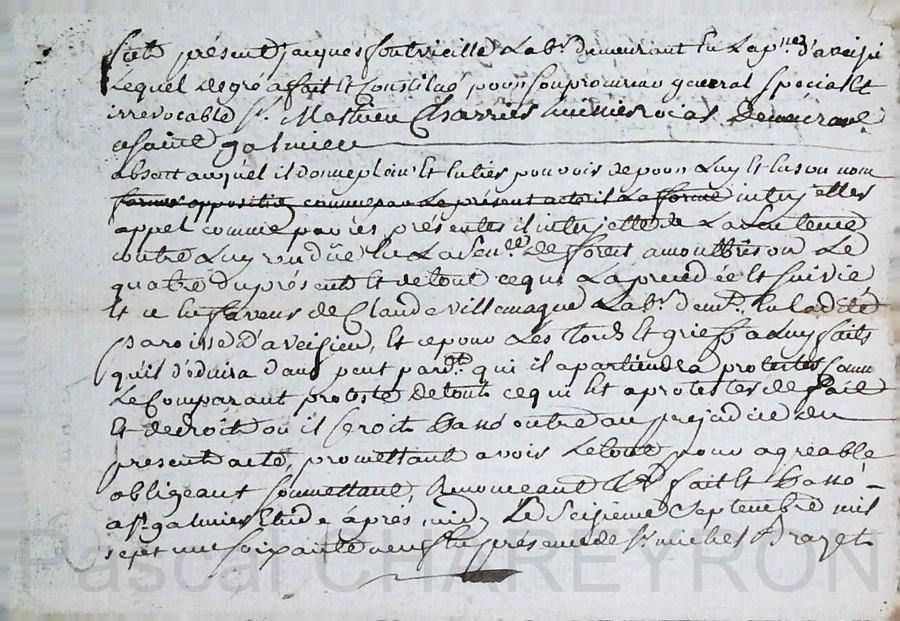 fut présent jacques fontvieille Lab.r demeurant En La p.sse d'aveisi
Lequel de gré a fait Et Constitué pour son procureur general special Et
irrevocable S.r Mathieu Charries huissier roial Demeurant
a saint galmier
absent auquel il donne plain Et Entier pouvoir de pour Luy Et En son nom
forme opposition comme par Le présent acte il La forme interjetter
appel comme par Ces présentes il interjette de La Sentence
contre Luy rendüe En La Sen.ée de forest a montbrison Le
quatre du présent Et de tout ce qui La précédée Et suivie
Et ce En faveur de Claude villemagne Lab.r dem.t En Ladite
Paroisse d'aveisieu, Et ce pour Les torts Et griefs a Luy faits
qu'il déduira dans peut pard.t qui il apartiendra protester comm
Le Comparant proteste de tout ce qui Est a protester de fait
Et de droit ou il seroit Passé outre au prejudice du
present acte, promettant avoir Le tout pour agreable
obligeant soumettant, Renonceant &.a fait Et Passé
a S.t galmier Etude aprés midy Le Seizieme Septembre mil
sept cent soixante neuf En présence de S.r michel
Pascal CHAREYRON